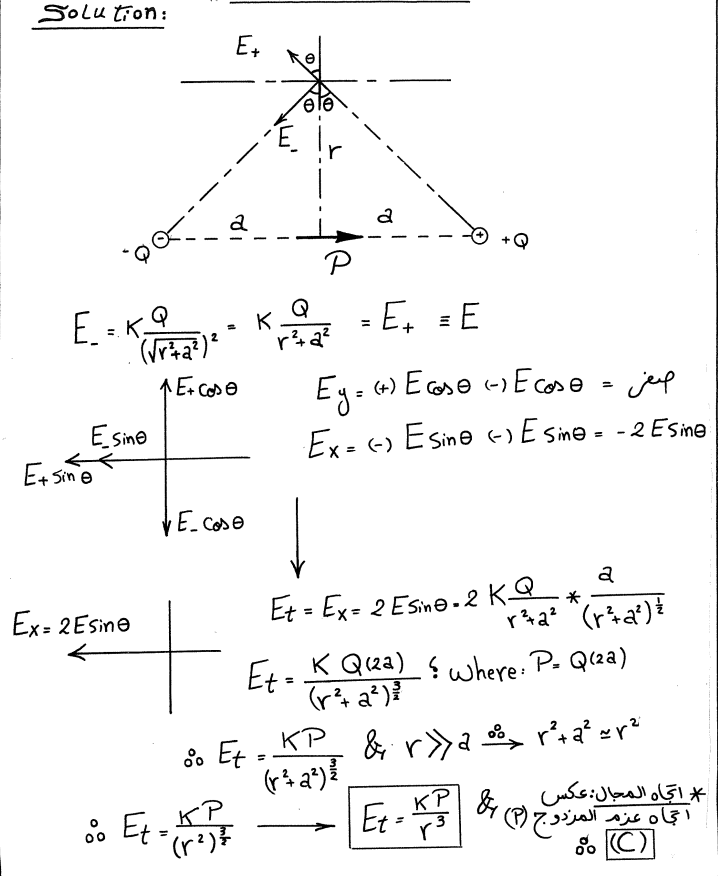 Solution:
E+
θ
θ θ
E_
r
a a
-Q - + +Q
P
E_ = K Q/(√r²+a²)² = K Q/r²+a² = E+ ≡ E
E+ cosθ
Ey = (+) E cosθ (-) E cosθ = صفر
E_ sinθ
Ex = (-) E sinθ (-) E sinθ = -2 E sinθ
E+ sinθ
E_ cosθ
Ex = 2E sinθ
Et = Ex = 2 E sinθ = 2 K Q/r²+a² * a/(r²+a²)^½
Et = K Q(2a)/(r²+a²)^3/2 ; where: P = Q(2a)
∴ Et = KP/(r²+a²)^3/2 & r ≫ a ∴→ r²+a² ≃ r²
∴ Et = KP/(r²)^3/2 → Et = KP/r³ &
* اتجاه المجال: عكس
اتجاه عزم المزدوج (P)
∴ (C)